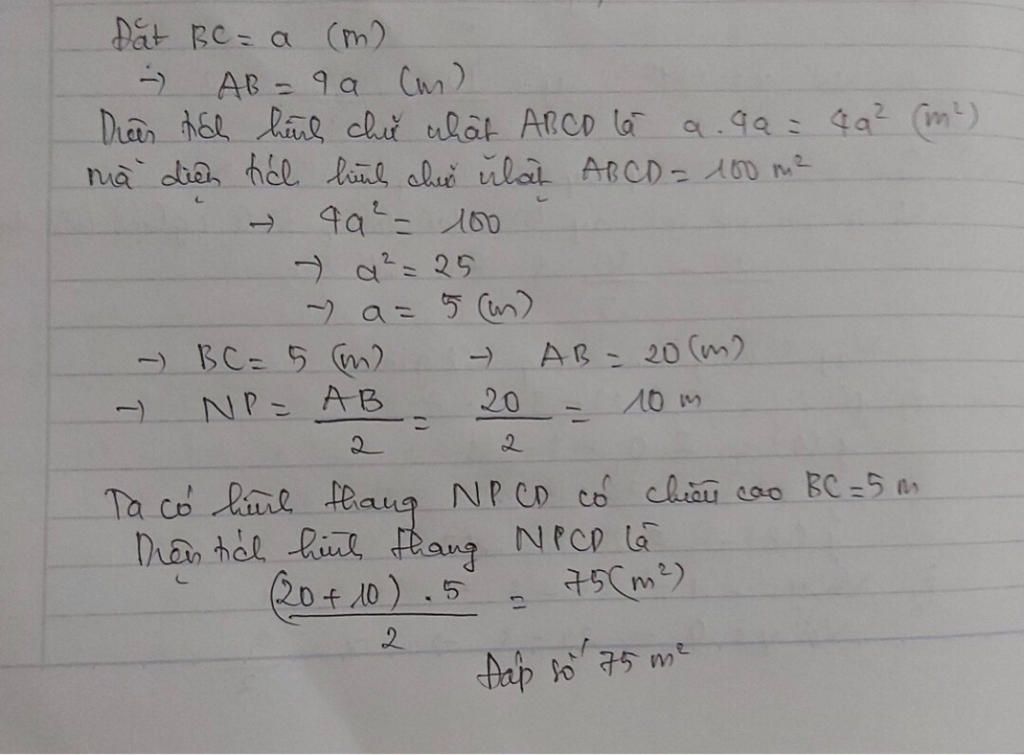 Đặt BC = a (m)
→ AB = 4a (m)
Diện tích hình chữ nhật ABCD là a . 4a = 4a² (m²)
mà diện tích hình chữ nhật ABCD = 100 m²
→ 4a² = 100
→ a² = 25
→ a = 5 (m)
→ BC = 5 (m) → AB = 20 (m)
→ NP = AB/2 = 20/2 = 10 m
Ta có hình thang NPCD có chiều cao BC = 5 m
Diện tích hình thang NPCD là
(20 + 10) . 5 / 2 = 75 (m²)
Đáp số 75 m²